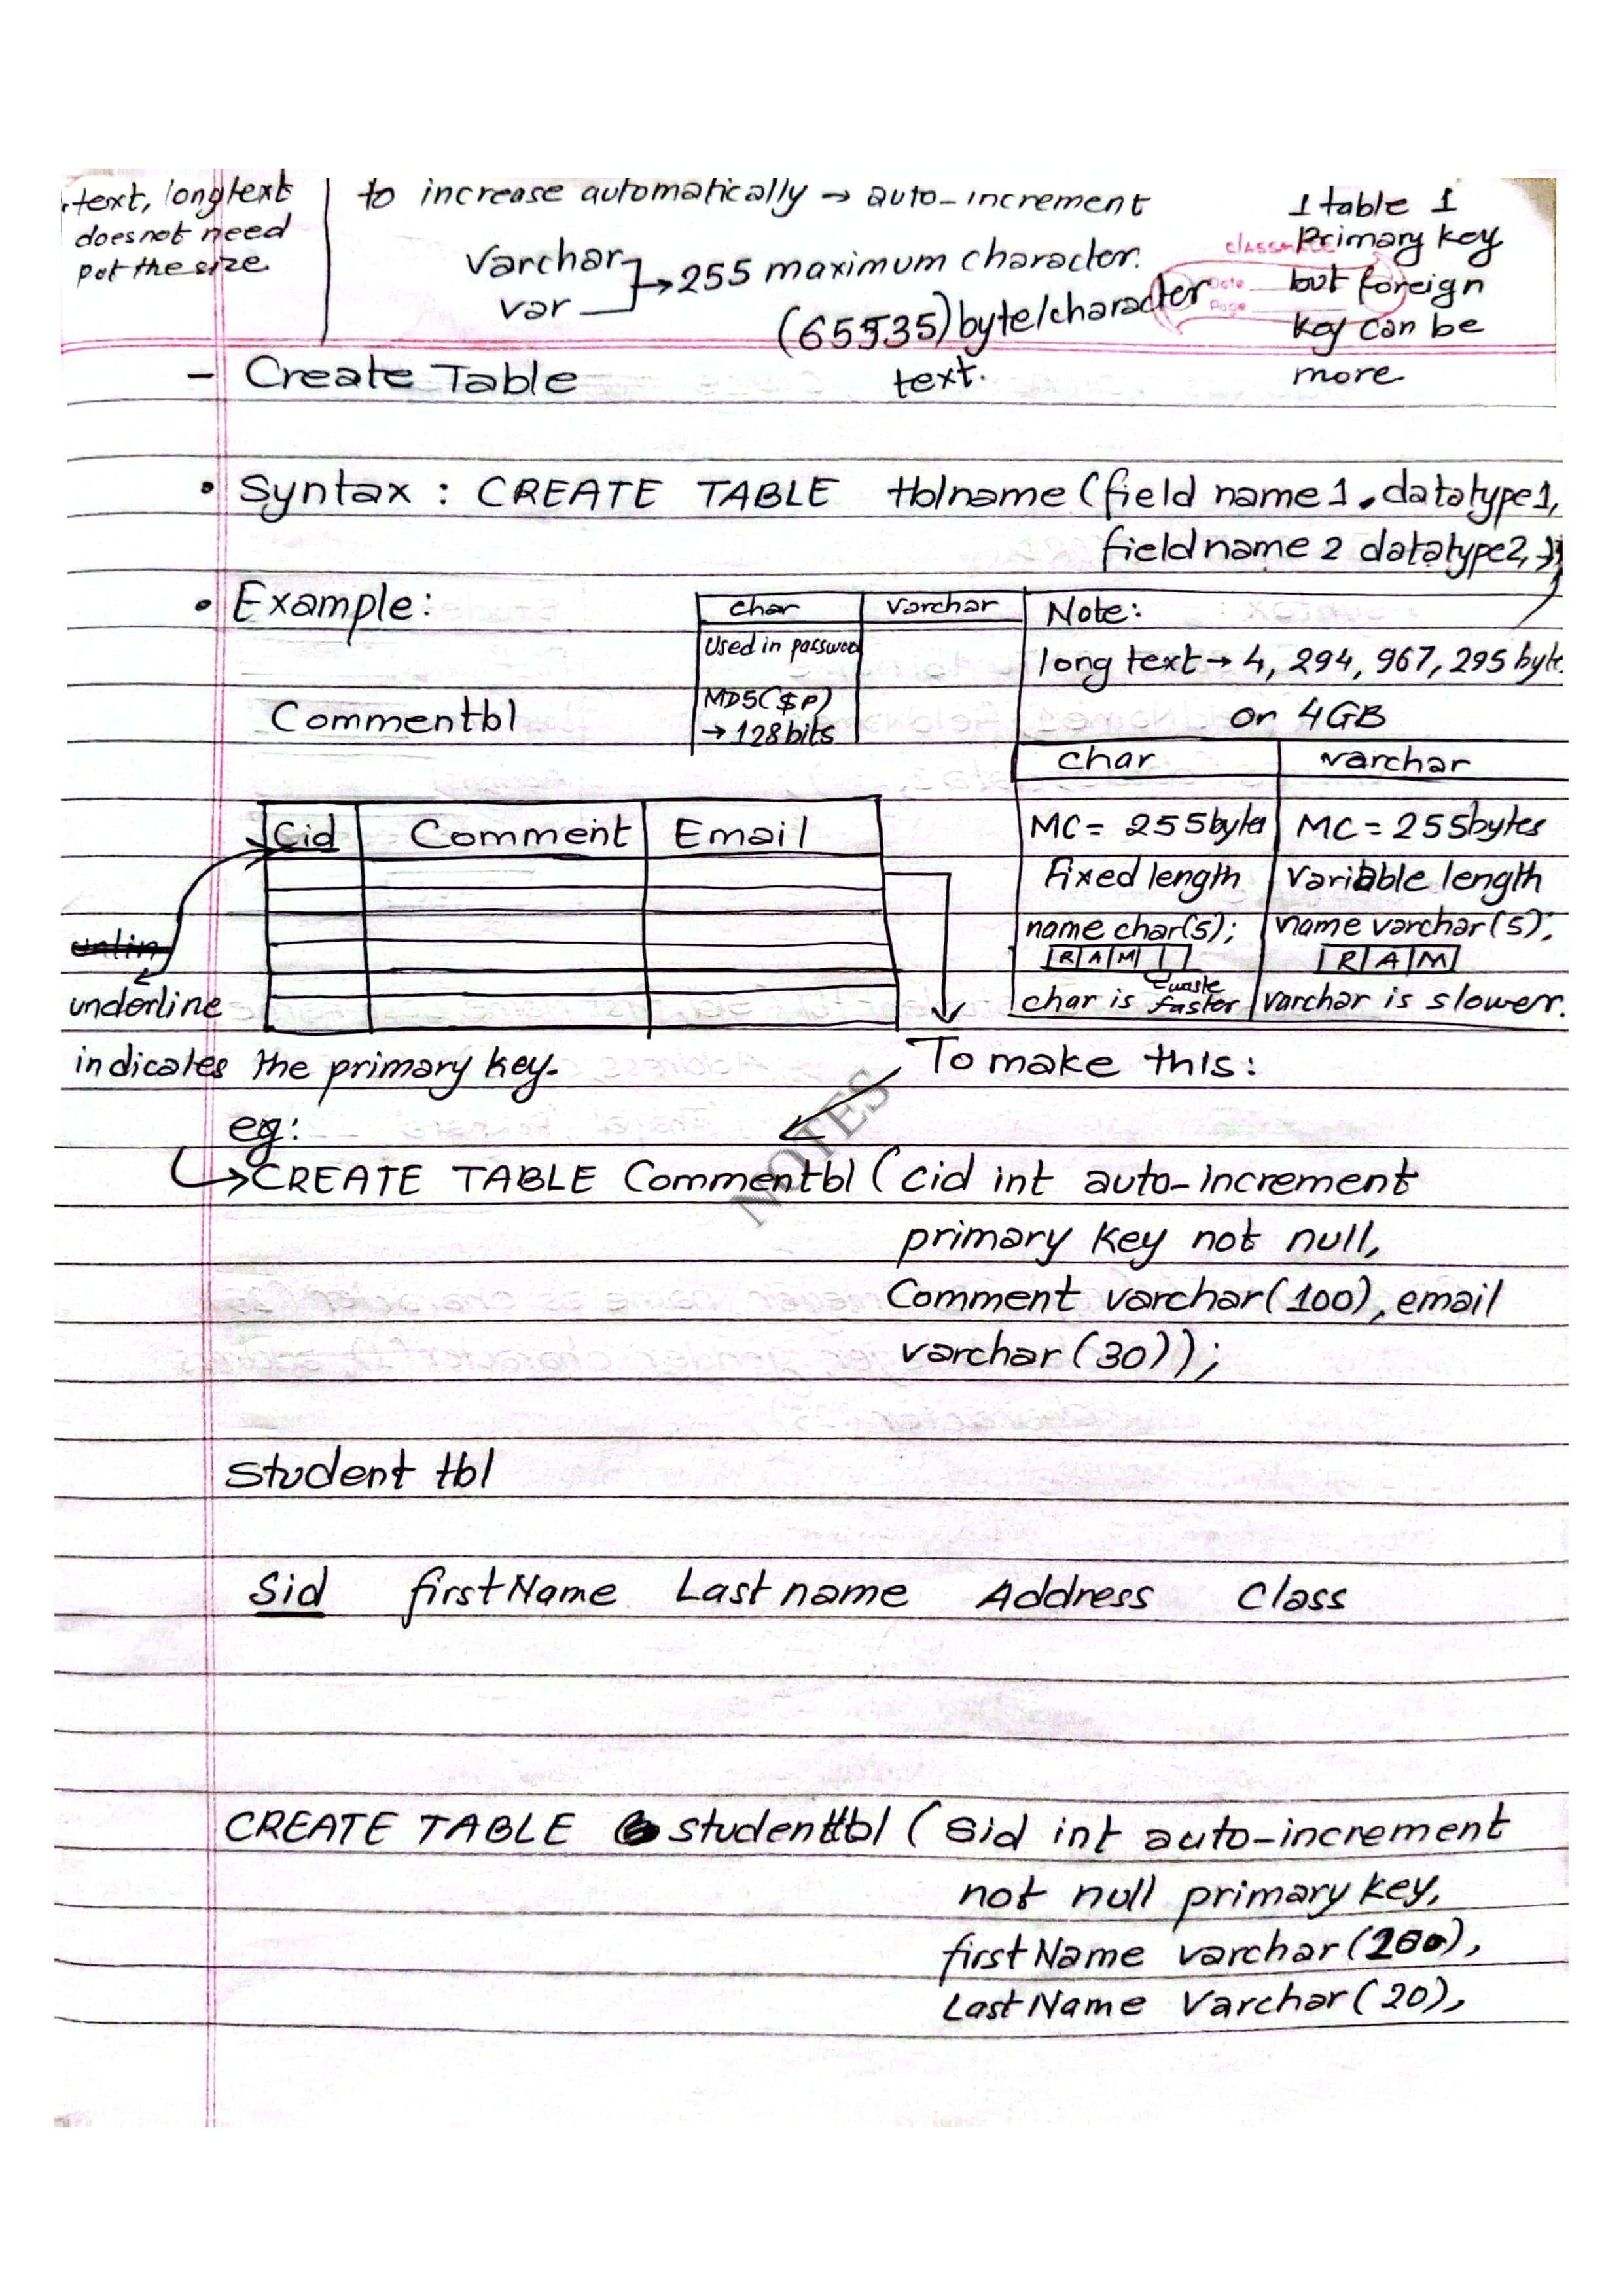 .text, longtext
doesnot need
put the size.
to increase automatically → auto-increment
Varchar
var
→ 255 maximum character.
(65535) byte/character
text.
1 table 1
Primary key
but foreign
key can be
more.
classmate
Date
Page
- Create Table
• Syntax : CREATE TABLE tblname (field name1 datatype1,
field name 2 datatype2,
• Example:
char varchar
Used in password
MD5($P)
→ 128 bits
Note:
long text → 4, 294, 967, 295 byte
or 4GB
Commentbl
char varchar
MC = 255 bytes MC = 255 bytes
Fixed length variable length
name char(5); name varchar(5);
R A M R A M
waste
char is faster varchar is slower.
Cid Comment Email
underline
indicates the primary key.
To make this:
eg:
→ CREATE TABLE Commentbl ( cid int auto-increment
primary key not null,
Comment varchar(100), email
varchar (30));
NOTES
Student tbl
Sid firstName Last name Address Class
CREATE TABLE studenttbl ( Sid int auto-increment
not null primary key,
firstName varchar(200),
LastName Varchar(20),